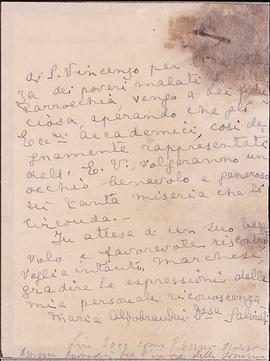 di S. Vincenzo per
za dei poveri malati
Parrocchia, vengo a Lei fidu
ciosa sperando che gli
Ecc.mi accademici, così de
gnamente rappresentati
dall' E. V. volgeranno un
occhio benevolo e generoso
su tanta miseria che li
circonda. -
In attesa di un suo bene
volo e favorevole riscontro
voglia intanto, marchese,
gradire le espressioni della
mia personale riconoscenza
Maria Aldobrandini P.ssa Salviati
lire 200 come l'anno scorso